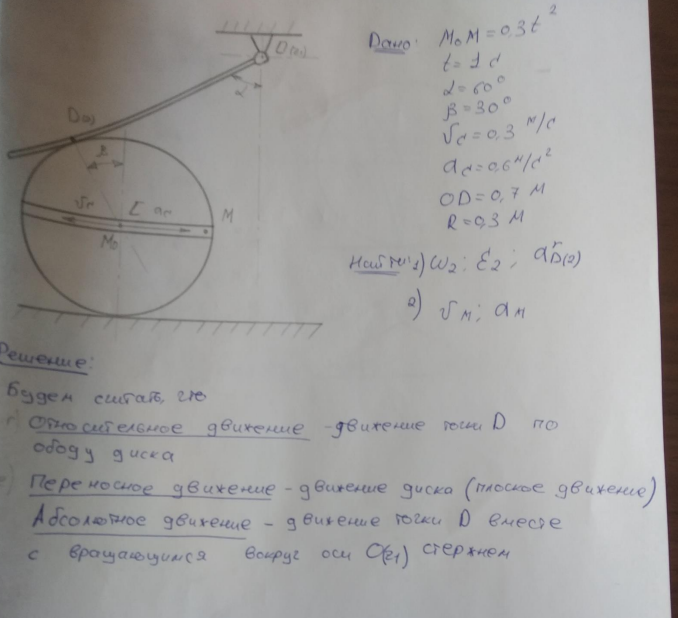 O(z₁)
Дано: M₀M = 0,3t²
t = 1 с
α
α = 60°
β = 30°
D(2)
Vc = 0,3 м/с
β
ac = 0,6 м/с²
OD = 0,7 м
Vc C ac M
R = 0,3 м
M₀
Найти: 1) ω₂; ε₂; aʳD(2)
2) VM; aM
Решение:
Будем считать, что
Относительное движение - движение точки D по
ободу диска
Переносное движение - движение диска (плоское движение)
Абсолютное движение - движение точки D вместе
с вращающимся вокруг оси O(z₁) стержнем